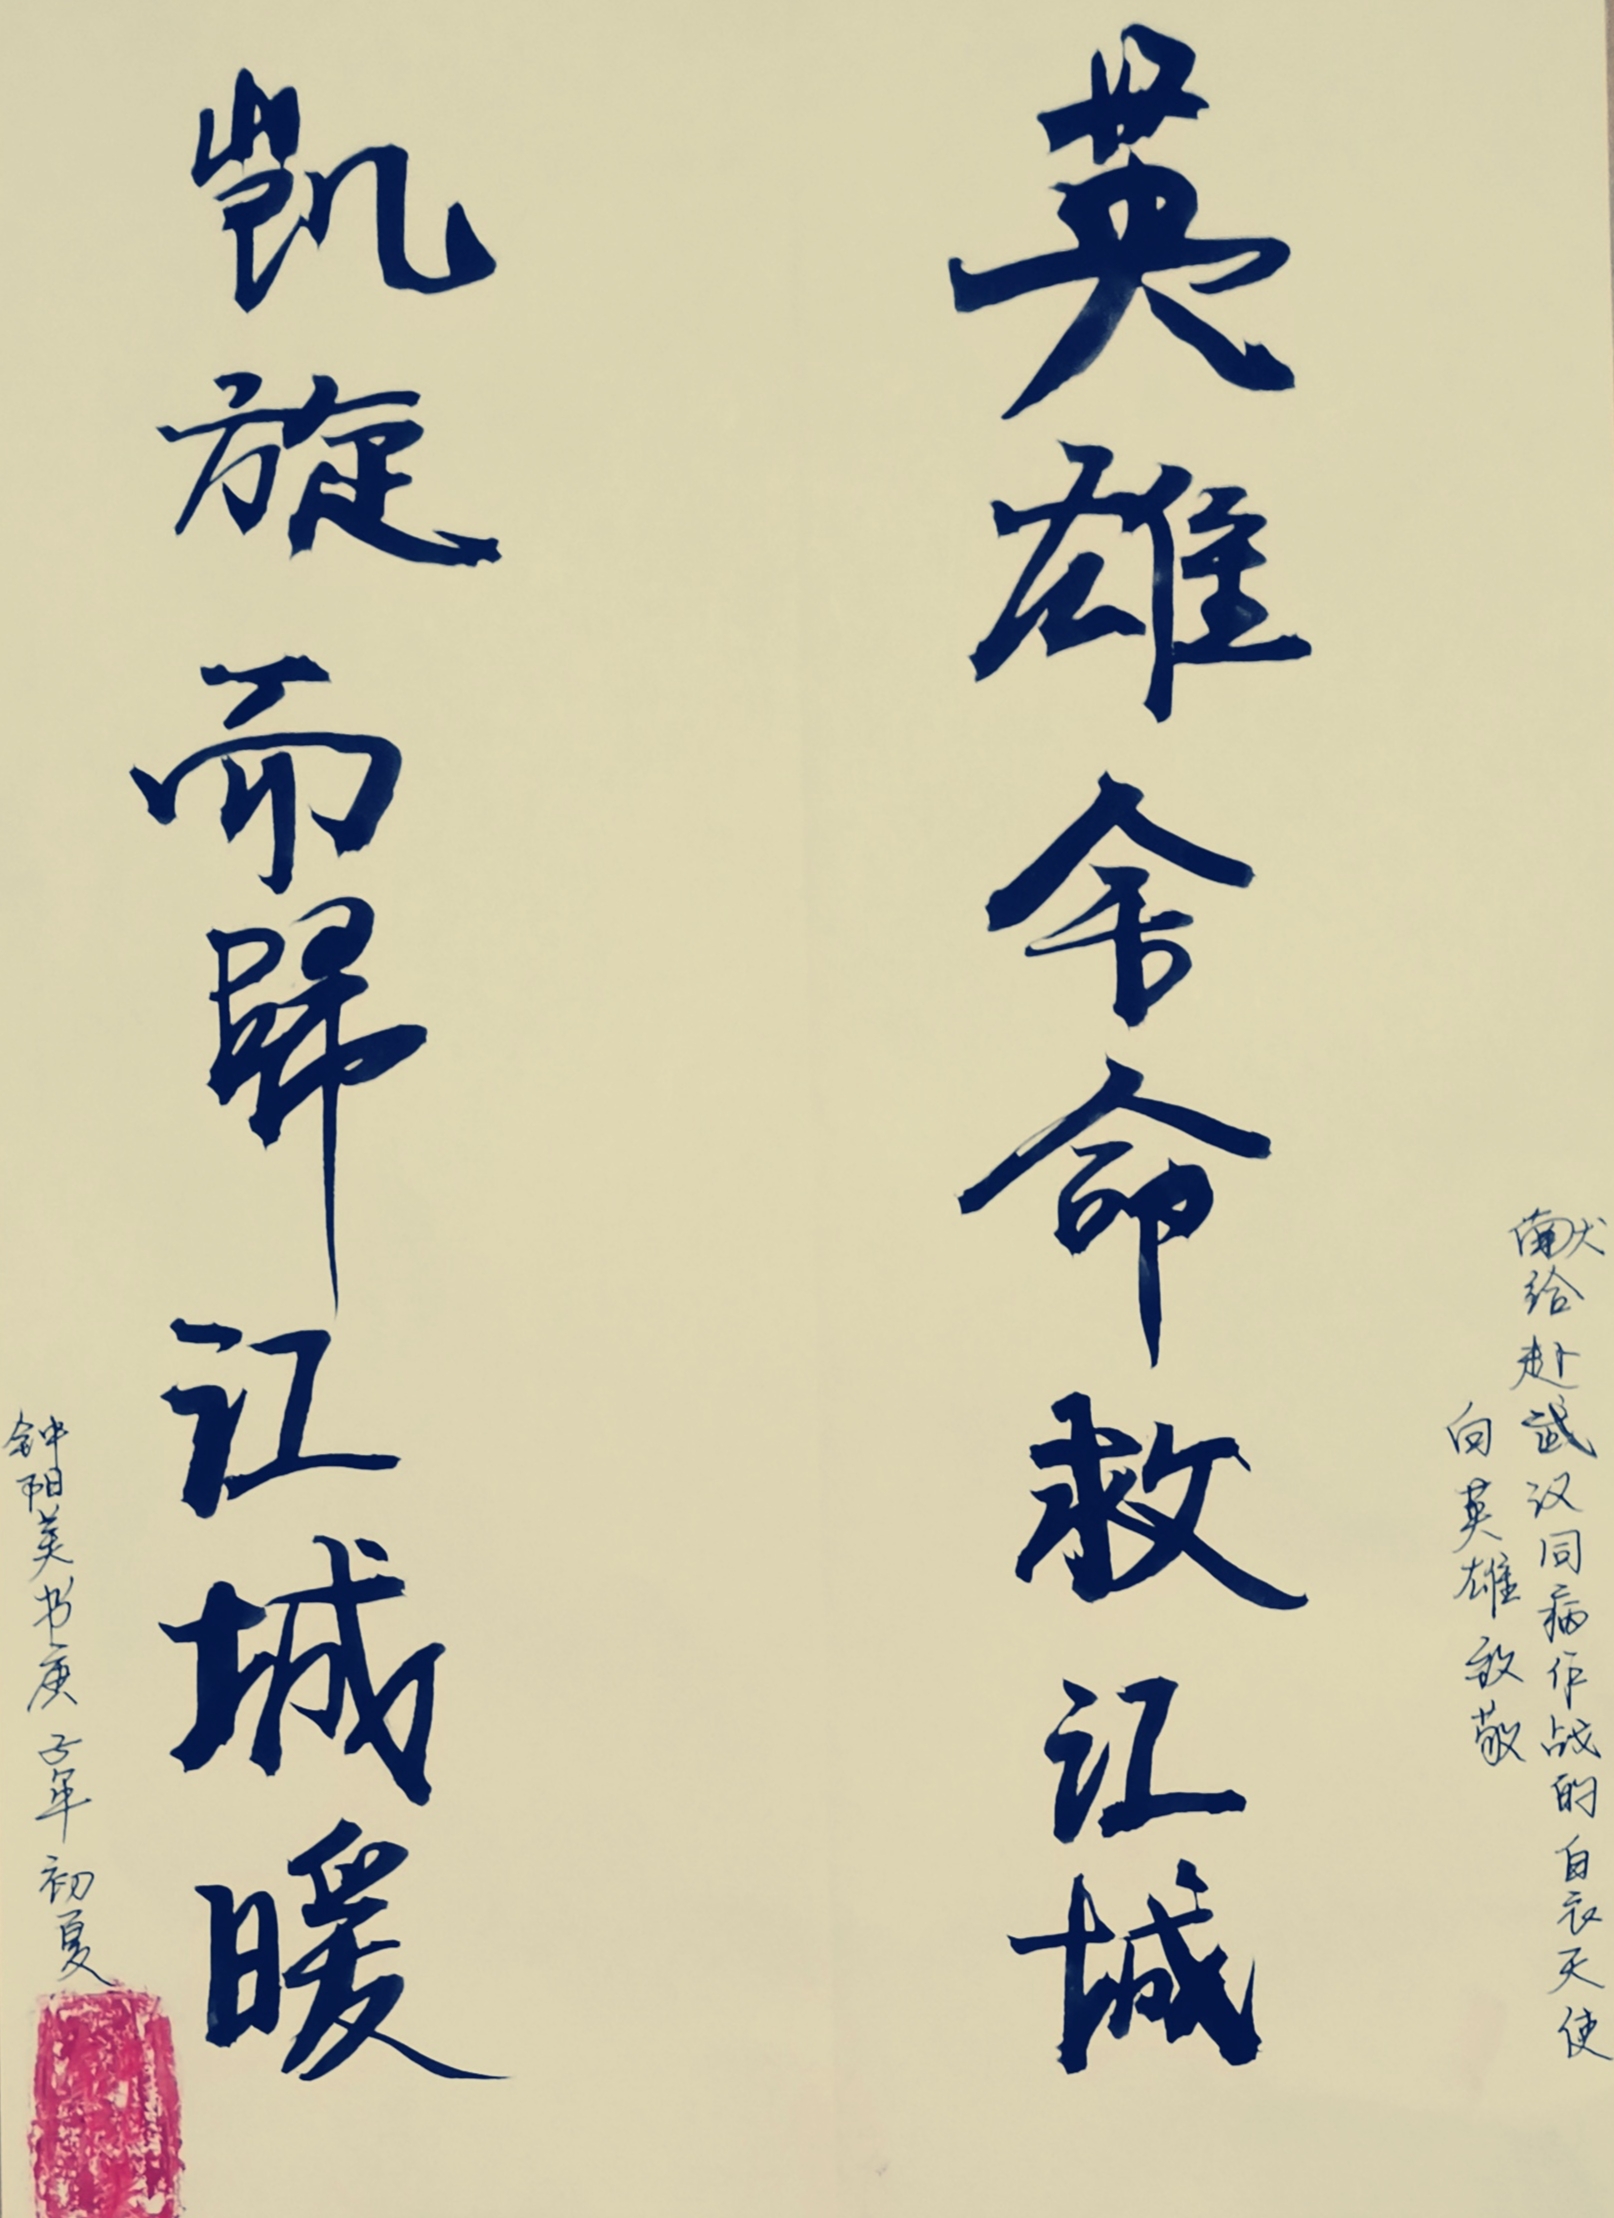 献给赴武汉同病作战的白衣天使
向英雄致敬
英雄舍命救江城
凯旋而歸江城暖
钟阳美书庚子年初夏